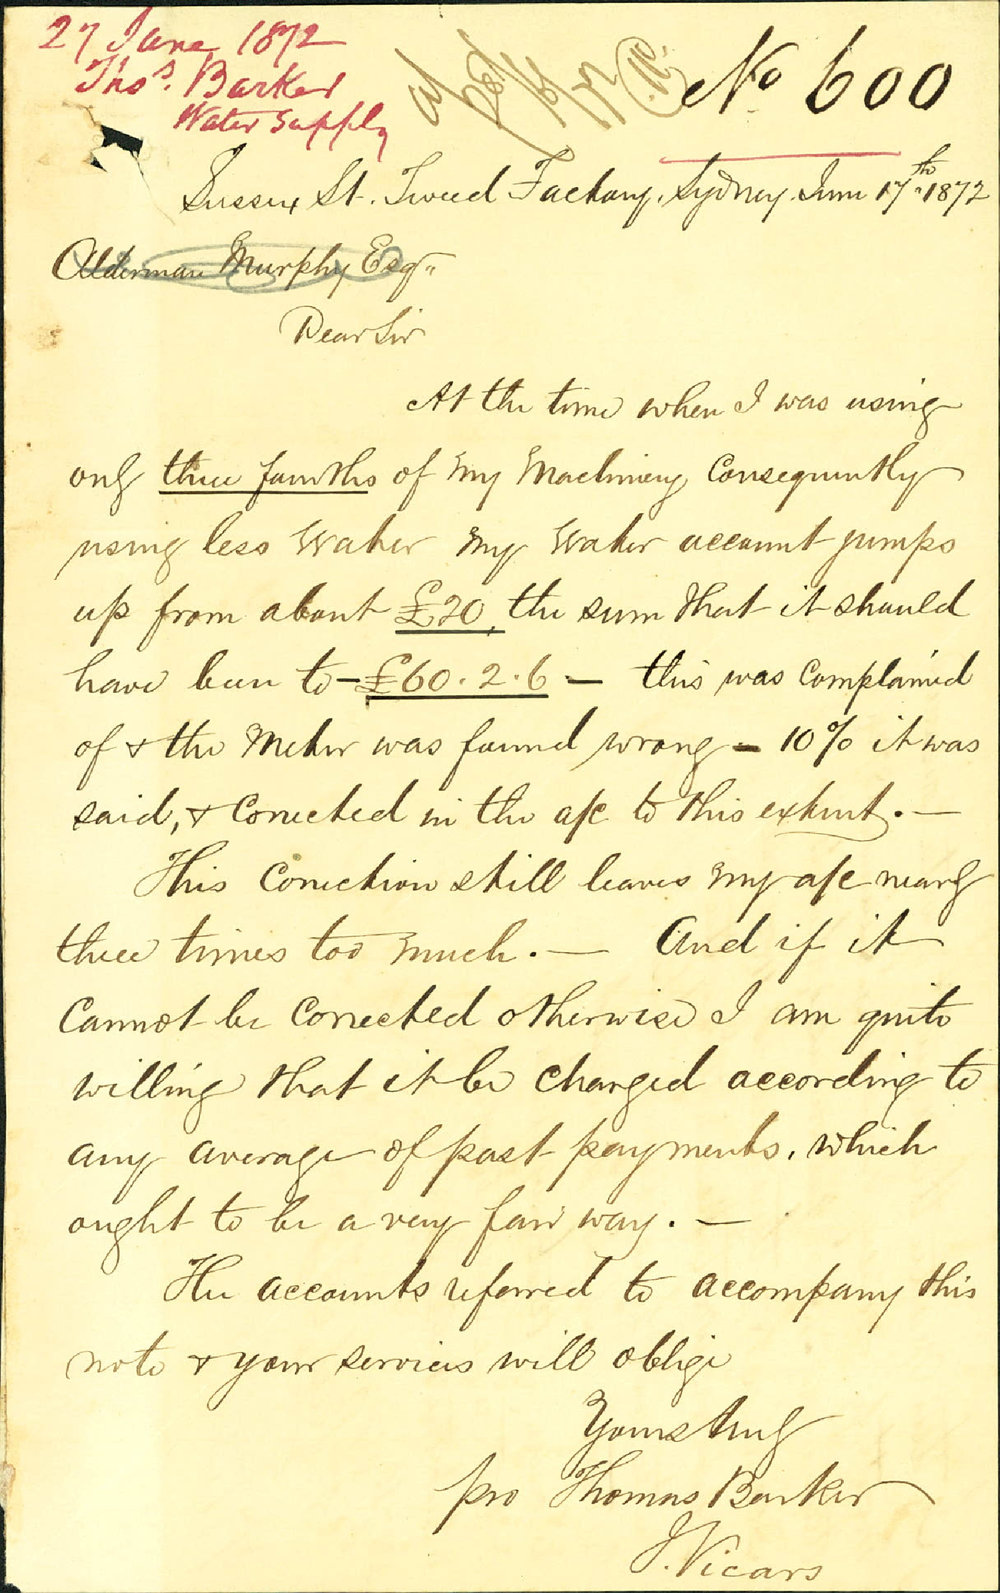 27 June 1872
Thos. Barker
Water Supply
No 600
Sussex St. Tweed Factory, Sydney. June 17th. 1872
Alderman Murphy Esq"
Dear Sir
At the time when I was using
only three fourths of my Machinery Consequently
using less Water my Water account jumps
up from about £20, the sum that it should
have been to - £60.2.6 — this was Complained
of & the Meter was found wrong - 10% it was
said, & Corrected in the a/c to this extent. —
This Correction still leaves my a/c nearly
three times too much. — And if it
Cannot be Corrected otherwise I am quite
willing that it be Charged according to
any average of past payments, which
ought to be a very fair way. —
The accounts referred to accompany this
note & your services will oblige
Yours truly
pro Thomas Barker
J. Vicars